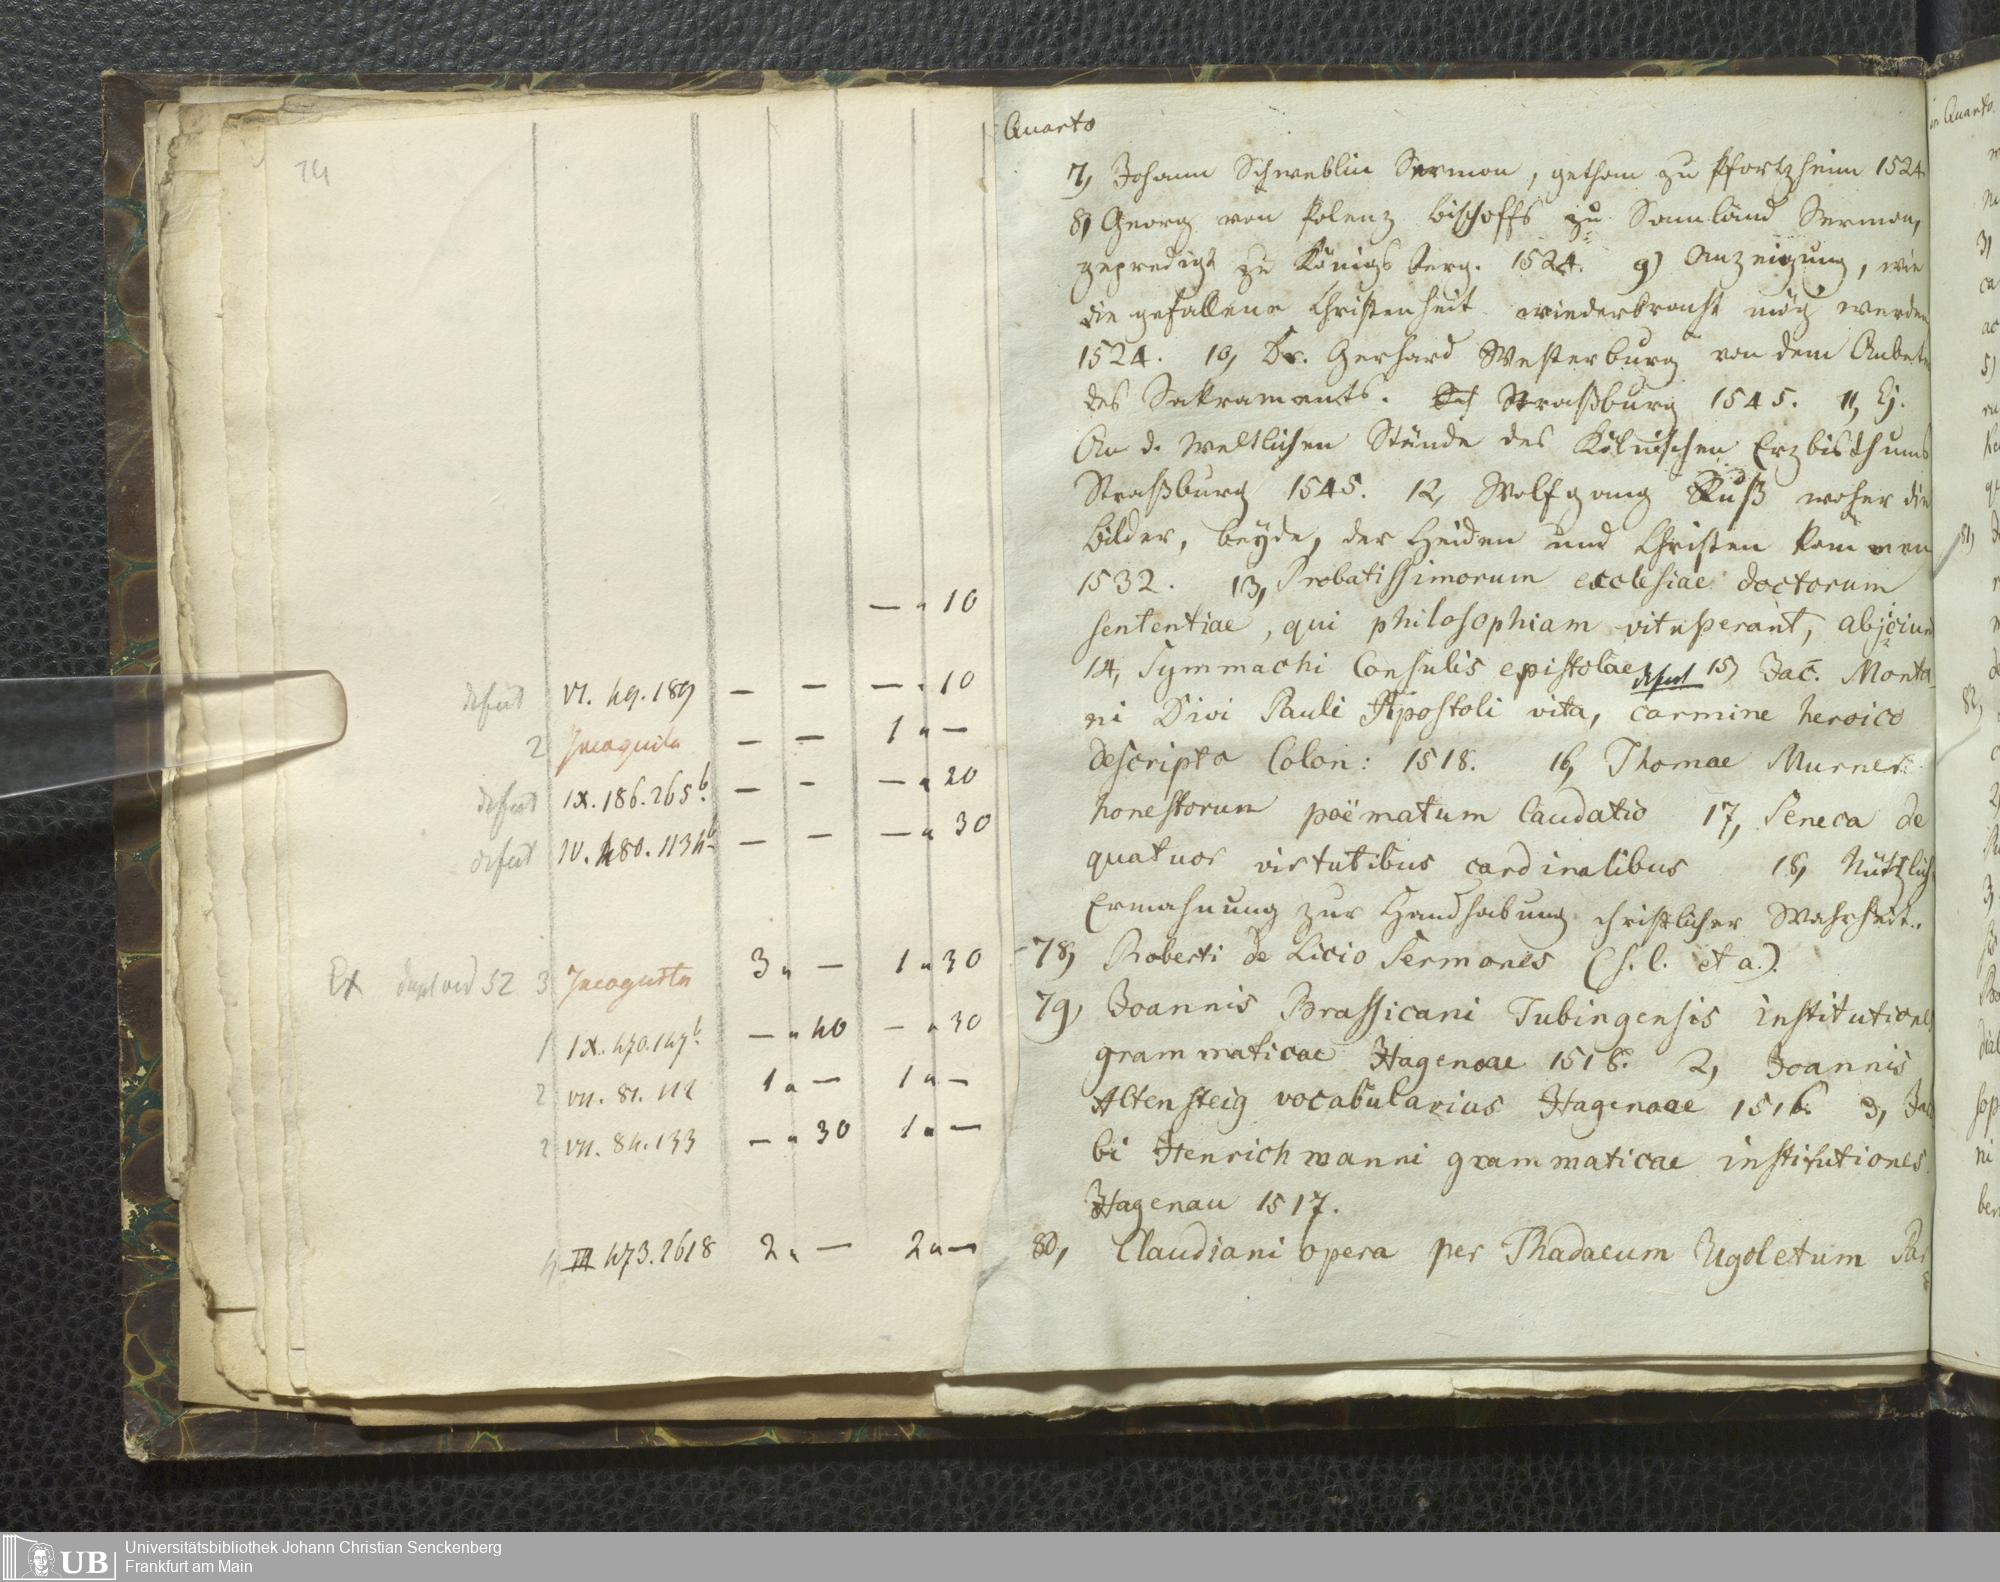 74
Quarto
7, Johann Schweblin Sermon, gethan zu Pfortzheim 1524
8, Georg von Polenz Bischoffs zu Samland Sermon,
gepredigt zu Königsberg. 1524. 9) Anzeigung, wie
die gefallene Christenheit wiederbracht mög werden
1524. 10, Dr. Gerhard Westerburg von dem Anbeten
des Sakraments. Straßburg 1545. 11, Ej.
An d. weltlichen Stände des Kölnischen Erzbisthums
Straßburg 1545. 12, Wolfgang Ruß woher die
Bilder, beyde, der Heiden und Christen kommen
1532. 13, Probatissimorum ecclesiae doctorum
sententiae, qui philosophiam vituperant, abjiciun
14, Symmachi Consulis epistolae defect 15) Jac. Monta-
ni Divi Pauli Apostoli vita, carmine heroico
descripta Colon: 1518. 16, Thomae Murner
honestorum poëmatum laudatio 17, Seneca de
quatuor virtutibus cardinalibus 18, Nützlich
Ermahnung zur Handhabung christlicher Wahrheit.
78, Roberti de Licio Sermones (s. l. et a.).
79, Joannis Brassicani Tubingensis institutiones
grammaticae Hagenoae 1518. 2, Joannis
Altensteig vocabularius Hagenoae 1516. 3, Jac
bi Henrichmanni grammaticae institutiones
Hagenau 1517.
80, Claudiani opera per Thadaeum Ugoletum Par
— " 10
defect VI. 49. 189 — — — " 10
2 Incognita — — 1 " —
defect IX. 186. 265b. — — — " 20
defect IV. 480. 1134b — — — " 30
Ex dupl vid 52 3 Incognita 3 " — 1 " 30
1 IX. 470. 147b. — " 40 — " 30
2 VII. 81. 112 1 " — 1 " —
2 VII. 84. 133 — " 30 1 " —
4 III 473. 2618 2 " — 2 " —
in Quarto
81,
82,
UB
Universitätsbibliothek Johann Christian Senckenberg
Frankfurt am Main